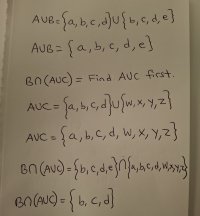 AUB={a,b,c,d}U{b,c,d,e}
AUB={a,b,c,d,e}
B∩(AUC)= Find AUC first.
AUC={a,b,c,d}U{w,x,y,z}
AUC={a,b,c,d,w,x,y,z}
B∩(AUC)={b,c,d,e}∩{a,b,c,d,w,x,y,z}
B∩(AUC)={b,c,d}